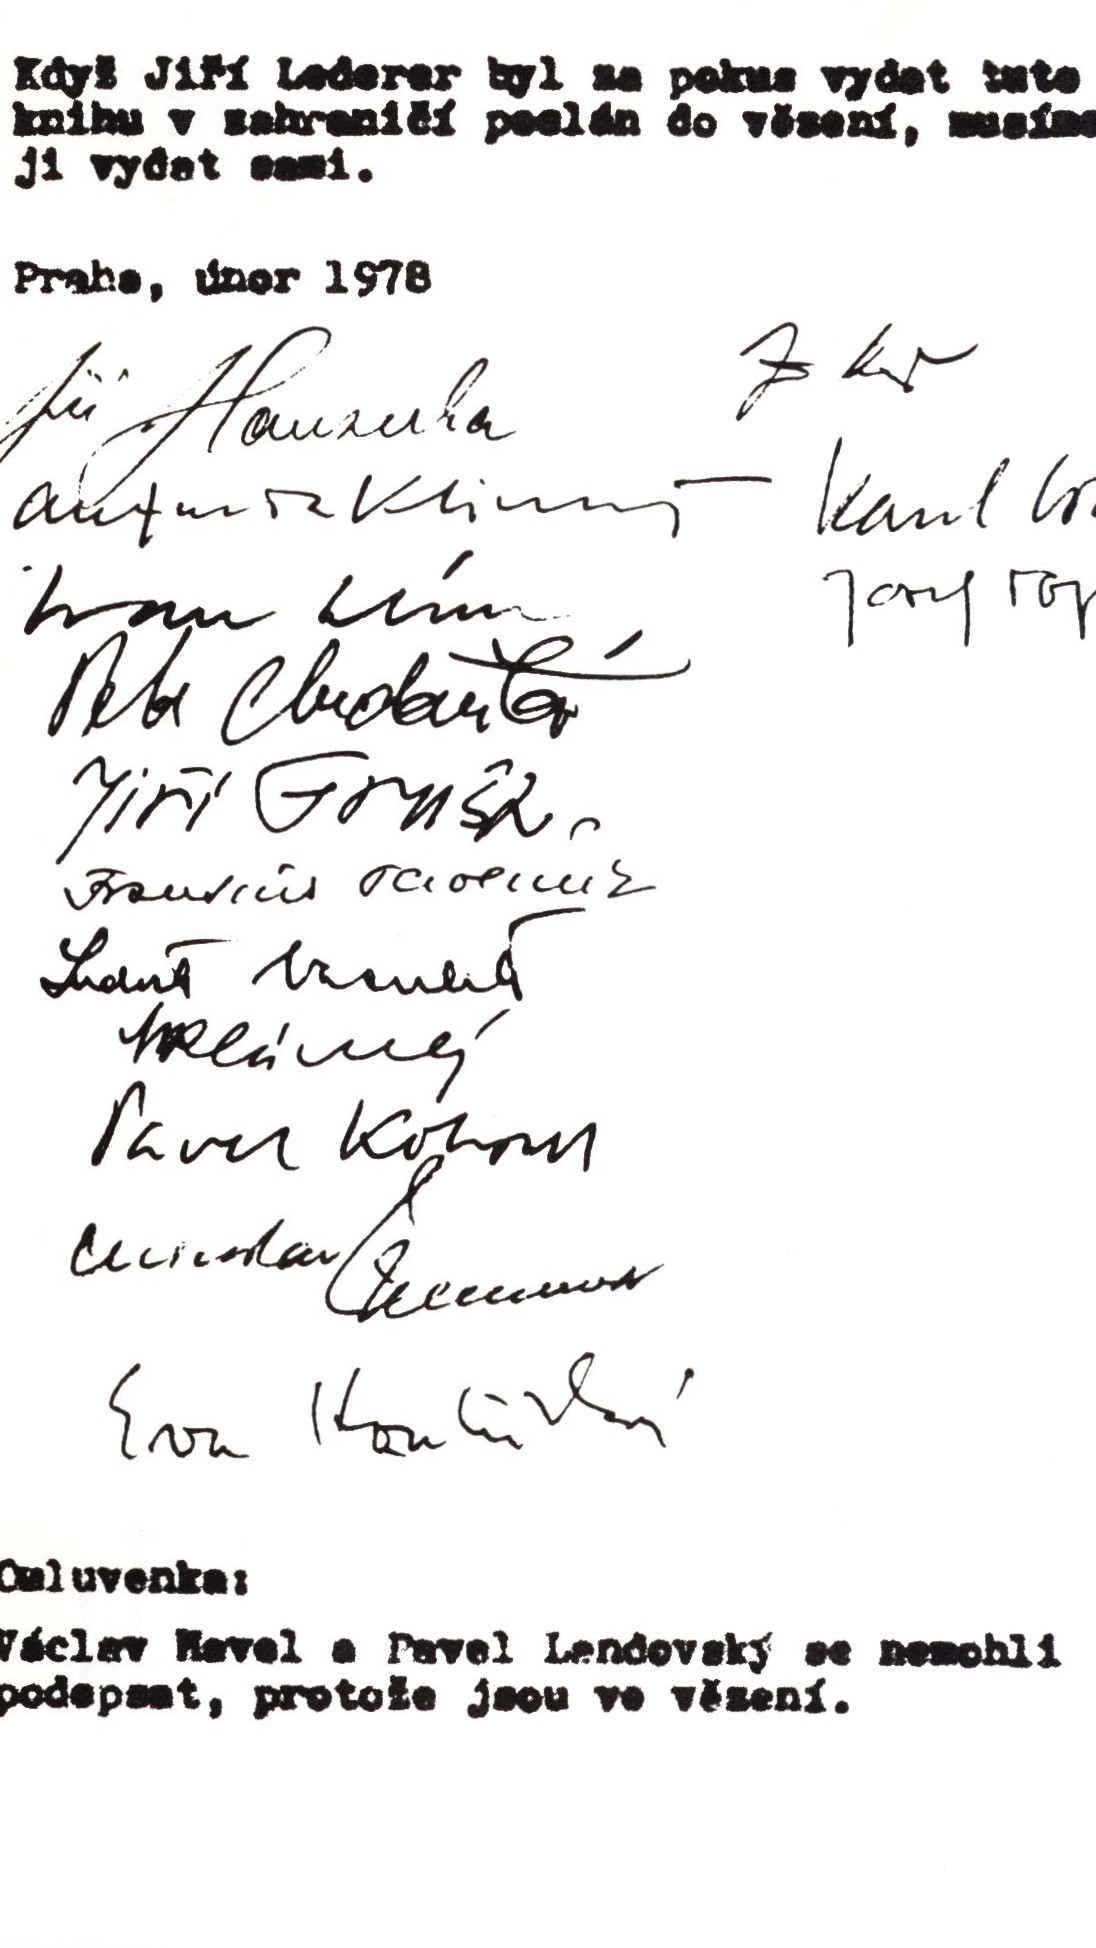 Když Jiří Lederer byl za pokus vydat tuto
knihu v zahraničí poslán do vězení, musíme
ji vydat sami.
Praha, únor 1978
Jiří Hanzelka
Karel
Ivan Klíma
Josef Top
Petr Chudožilov
Jiří Gruša
František Pavlíček
Ludvík Vaculík
Pavel Kohout
Eva Kantůrková
Omluvenka:
Václav Havel a Pavel Landovský se nemohli
podepsat, protože jsou ve vězení.